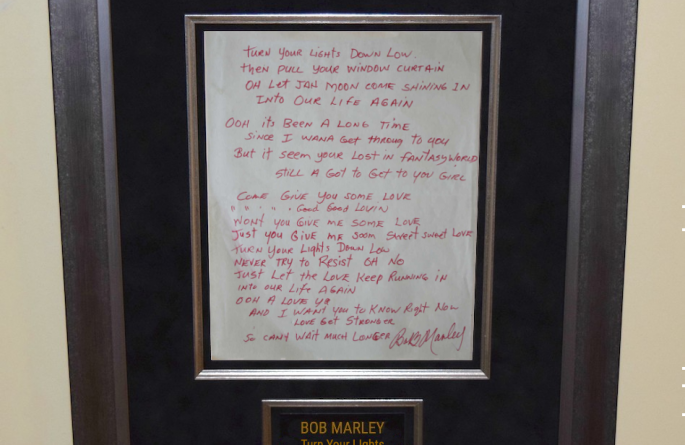 TURN YOUR LIGHTS DOWN LOW.
THEN PULL YOUR WINDOW CURTAIN
OH LET JAH MOON COME SHINING IN
INTO OUR LIFE AGAIN
OOH its BEEN A LONG TIME
SINCE I WANA GOT through TO YOU
BUT it SEEM YOUR LOST IN FANTASY WORLD
STILL A GOT TO GET TO YOU GIRL
COME GIVE YOU SOME LOVE
" " " " Good Good LOVIN
WONT YOU GIVE ME SOME LOVE
JUST you GIVE ME SOOM SWEET SWEET LOVE
TURN YOUR LIGHTS DOWN LOW
NEVER TRY TO RESIST OH NO
JUST LET the LOVE KEEP RUNNING IN
INTO OUR LIFE AGAIN
OOH A LOVE YA
AND I WANT YOU TO KNOW RIGHT NOW
LOVE GET STRONGER
SO CAN'T WAIT MUCH LONGER Bob Marley
BOB MARLEY
Turn Your Lights